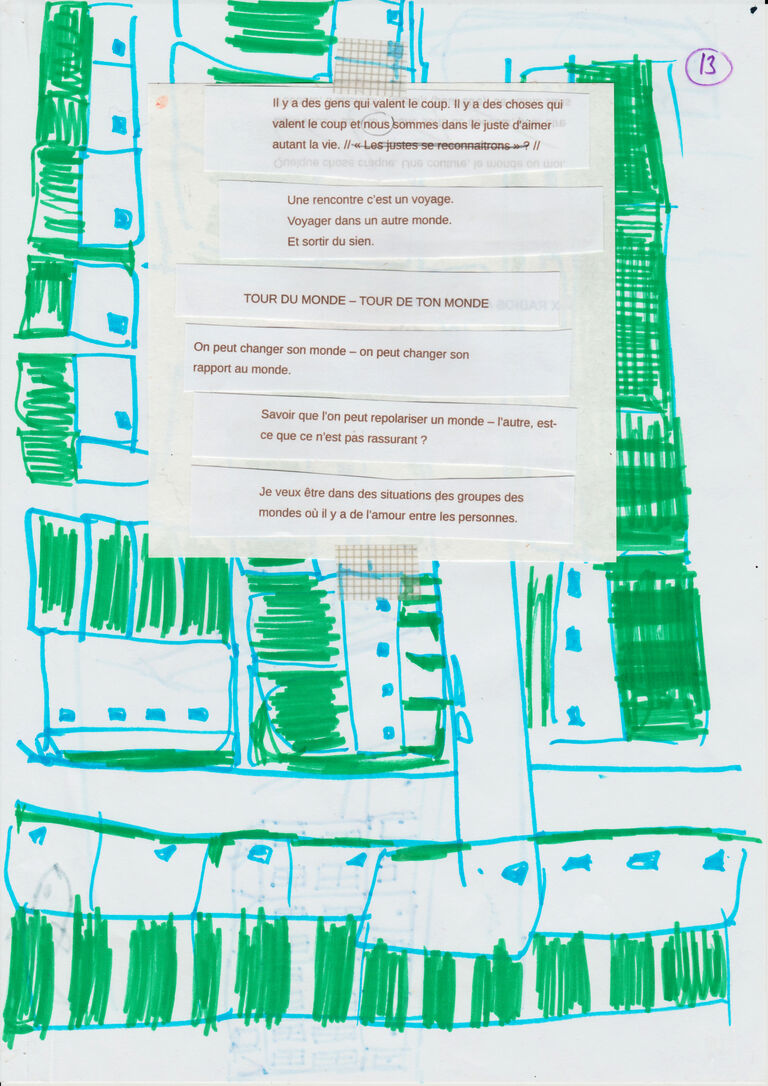 13
Il y a des gens qui valent le coup. Il y a des choses qui
valent le coup et nous sommes dans le juste d'aimer
autant la vie. // « Les justes se reconnaîtrons » ? //
Quelque chose craque. Une couture, le monde ou moi.
Une rencontre c'est un voyage.
Voyager dans un autre monde.
Et sortir du sien.
TOUR DU MONDE – TOUR DE TON MONDE
On peut changer son monde – on peut changer son
rapport au monde.
Savoir que l'on peut repolariser un monde – l'autre, est-
ce que ce n'est pas rassurant ?
Je veux être dans des situations des groupes des
mondes où il y a de l'amour entre les personnes.